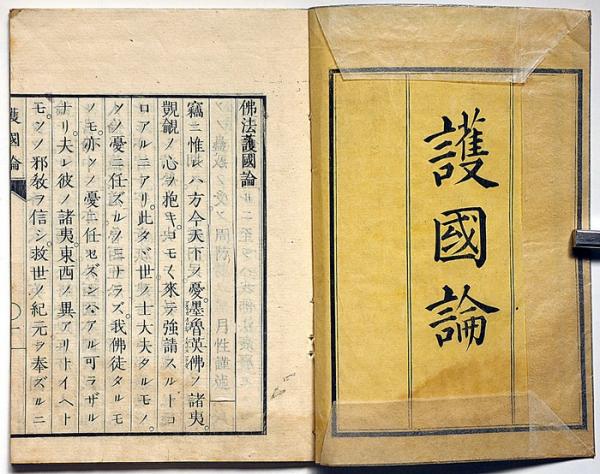 護國論
佛法護國論
月性謹述
竊ニ惟ルニ方今天下ノ憂墨魯英佛ノ諸夷。
覬覦ノ心ヲ抱キ。コモ〱來テ強請スルトコ
ロアルニアリ。此タヾ世ノ士大夫タルモノ。
ソノ憂ニ任ズルノミナラズ。我佛徒タルモ
ノモ。亦ソノ憂ニ任セズンバアル可ラザル
ナリ。夫レ彼ノ諸夷。東西ノ異アリトイヘト
モ。ソノ邪教ヲ信シ。救世ノ紀元ヲ奉ズルニ
護國論
一